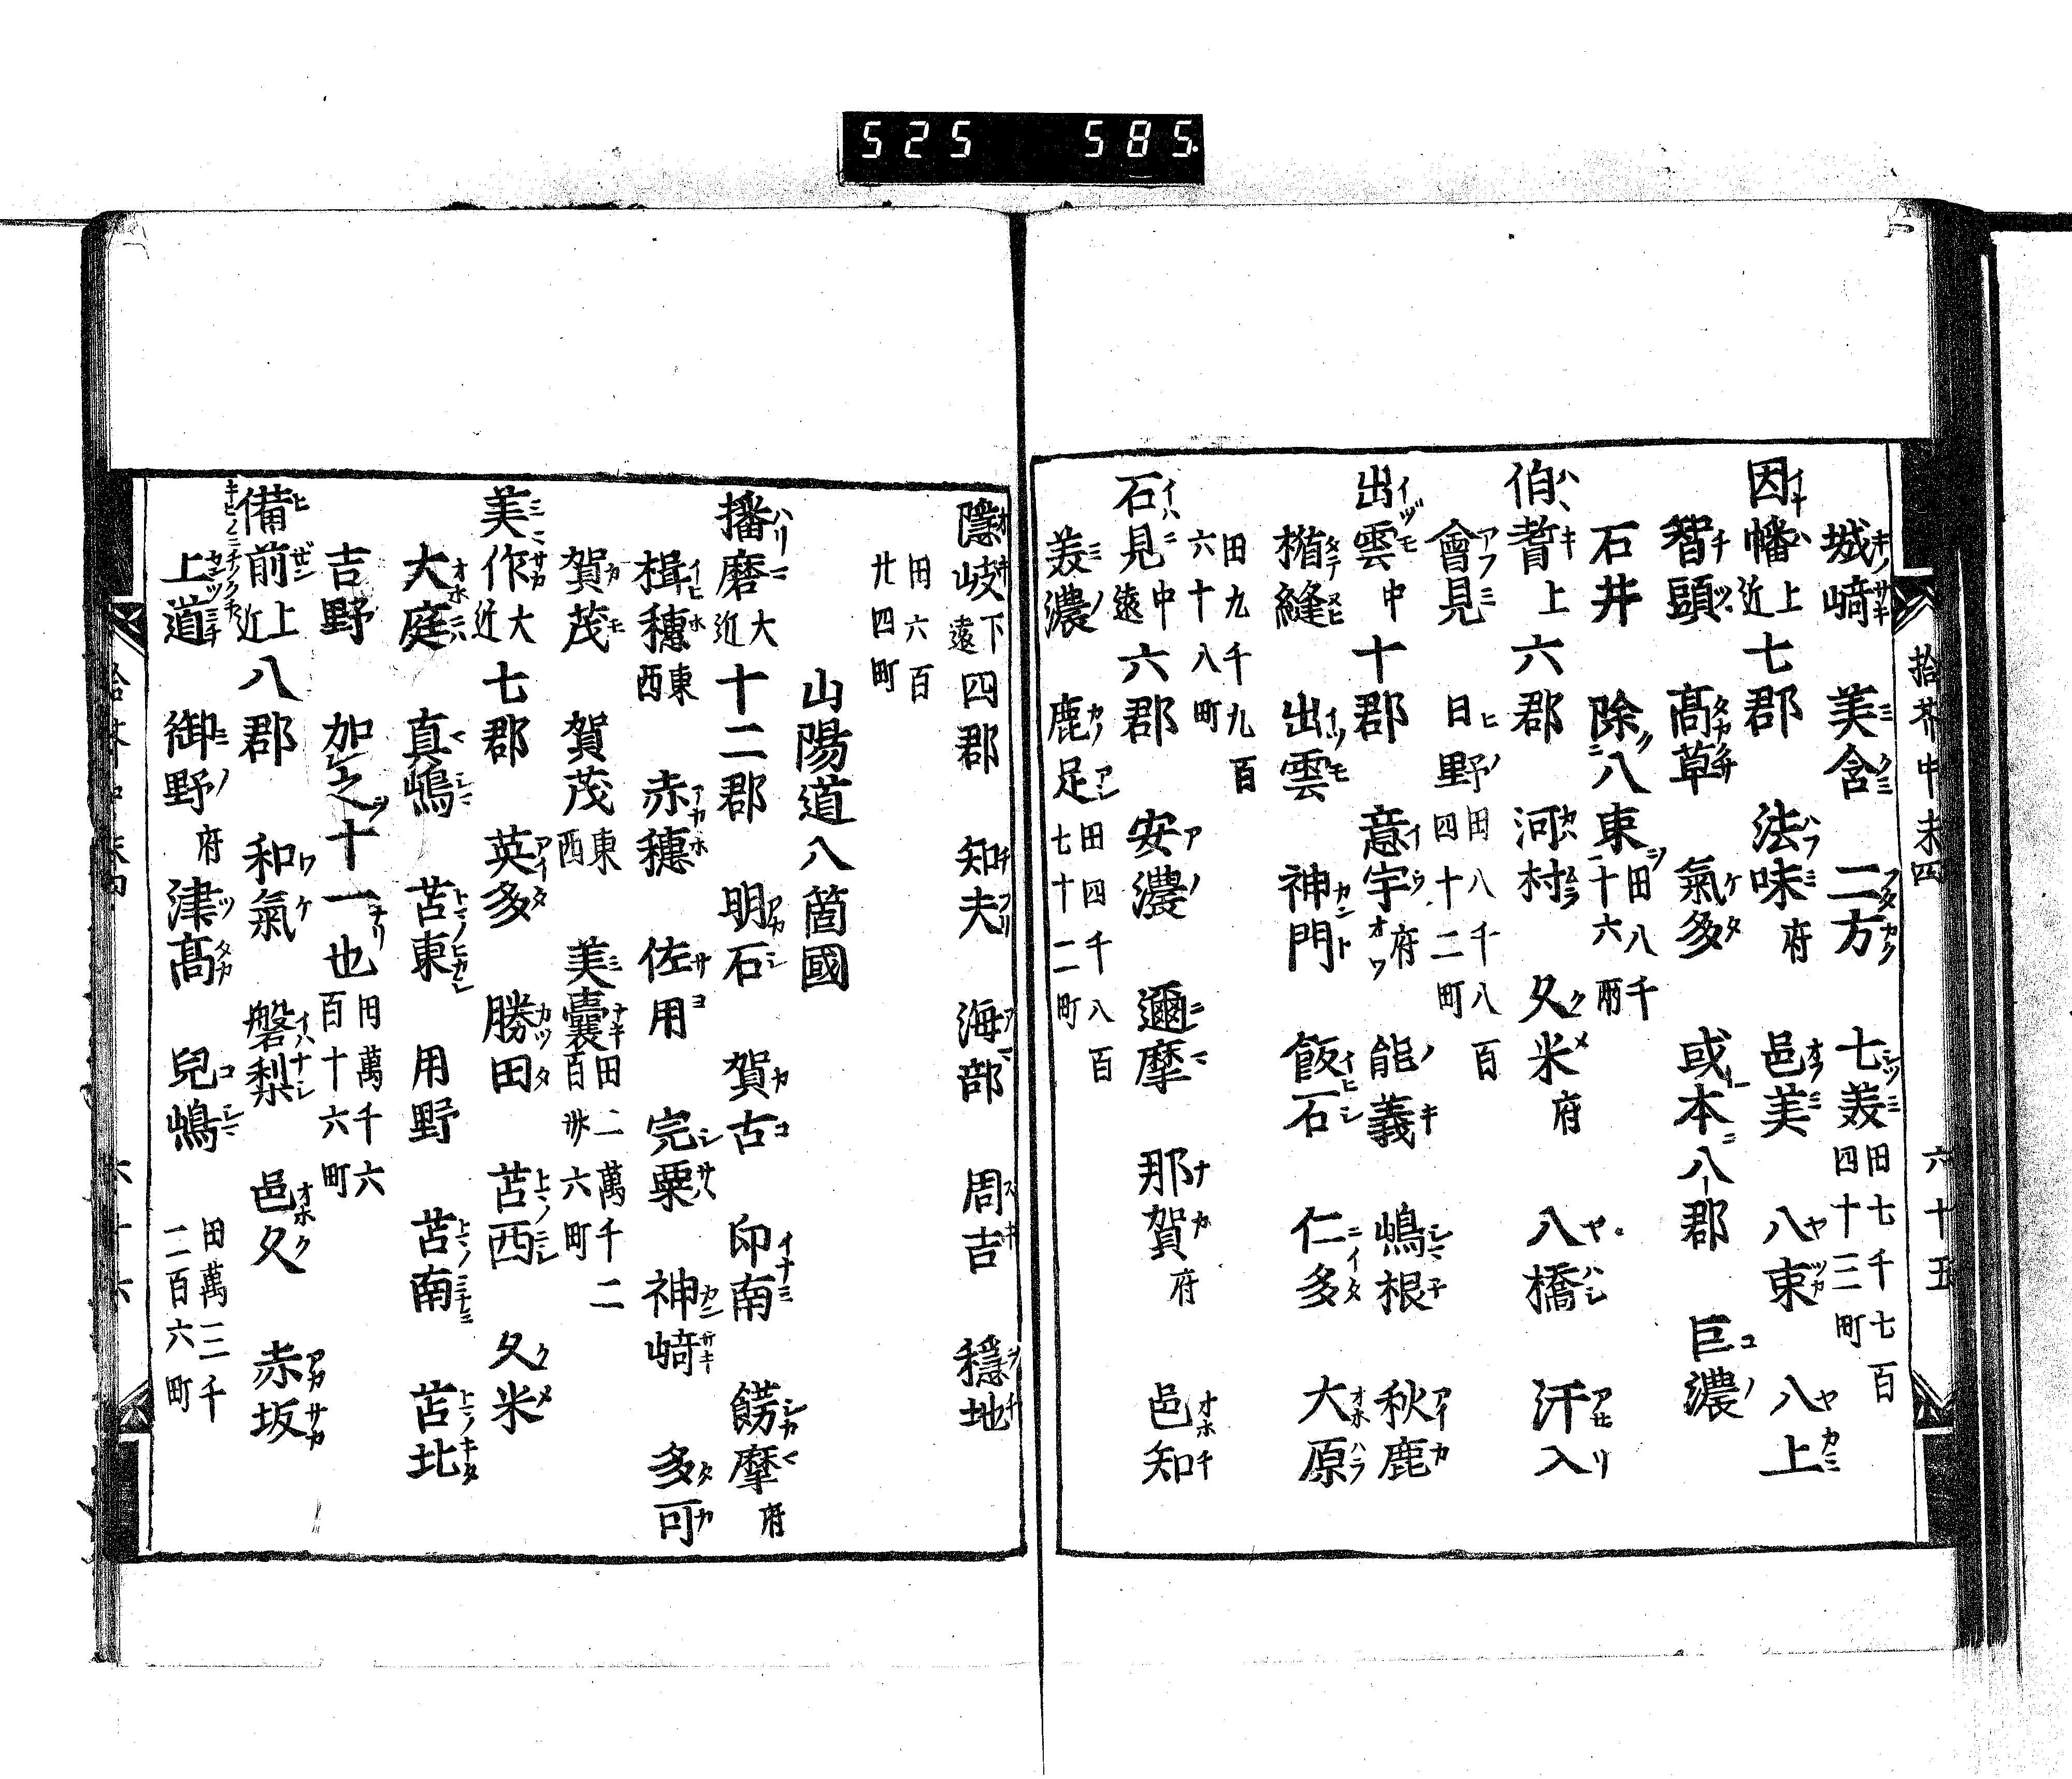 525 585.
拾芥中末四 六十五
城﨑 美含 二方 七美 田七千七百四十三町
因幡 上近 七郡 法味 府 邑美 八東 八上
智頭 髙草 氣多 或本八郡 巨濃
石井 除八東 田八千二十六
伯耆 上 六郡 河村 久米 府 八橋 汗入
會見 日野 田八千八百四十二町
出雲 中 十郡 意宇 府 能義 嶋根 秋鹿
楯縫 出雲 神門 飯石 仁多 大原
田九千九百六十八町
石見 中遠 六郡 安濃 邇摩 那賀 府 邑知
美濃 鹿足 田四千八百七十二町
隱岐 下遠 四郡 知夫 海部 周吉 穩地
田六百廿四町
山陽道八箇國
播磨 大近 十二郡 明石 賀古 印南 餝摩 府
揖穗 東西 赤穗 佐用 完粟 神﨑 多可
賀茂 賀茂 東西 美囊 田二萬千二百卅六町
美作 大近 七郡 英多 勝田 苫西 久米
大庭 真嶋 苫東 用野 苫南 苫北
吉野 加之十一也 田萬千六百十六町
備前 上近 八郡 和氣 磐梨 邑久 赤坂
上道 御野 府 津髙 兒嶋 田萬三千二百六町